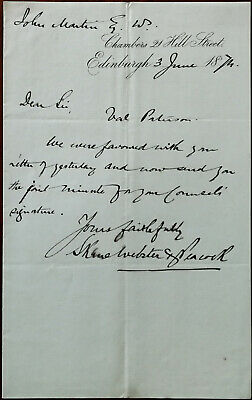 John Martin Esq W.S.
Chambers 21 Hill Street.
Edinburgh 3 June 1874.
Dear Sir,
Paterson.
We were favoured with your
letter of yesterday and now send you
the joint minute for your Counsels'
signature.
Yours faithfully
Skene Webster & Peacock